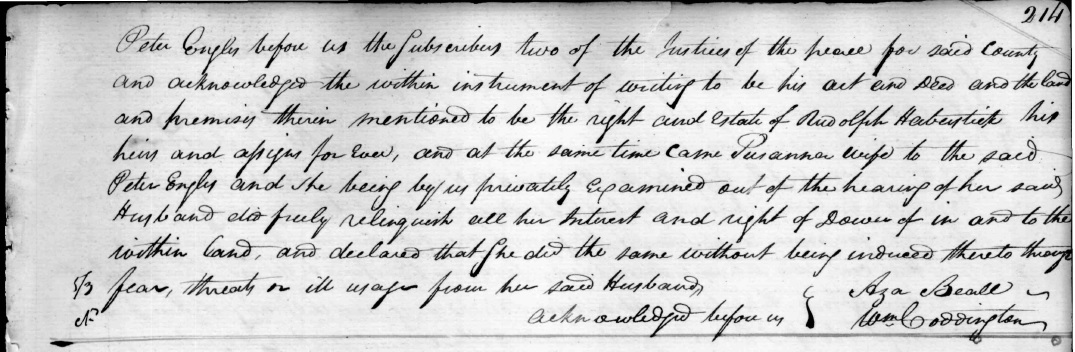 214
Peter Engles before us the Subscribers two of the Justices of the peace for said County
and acknowledged the within instrument of writing to be his act and Deed and the land
and premises therein mentioned to be the right and Estate of Rudolph Haberstick his
heirs and assigns for Ever, and at the same time Came Susanna wife to the said
Peter Engles and She being by us privately Examined out of the hearing of her said
Husband did freely relinquish all her Interest and right of Dower of in and to the
within land, and declared that She did the same without being induced thereto through
5/3 fear, threats or ill usage from her said Husband,
Aza Beall
acknowledged before us
Wm Coddington